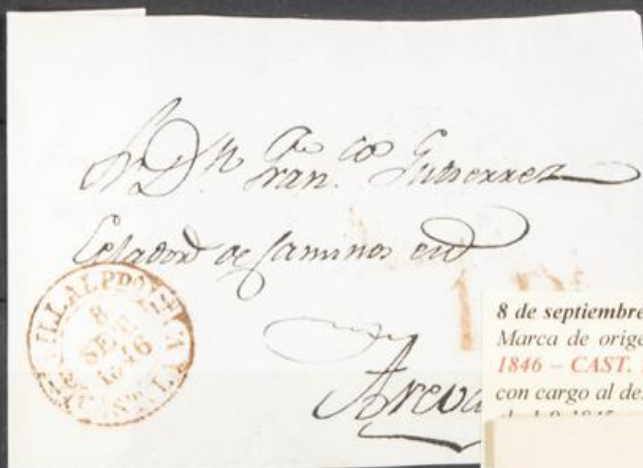 Sr. Dn. Franco. Gutierrez
Celador de Caminos en
Areva
VILLALPDO.
8
SET.
1846
CAST. L
8 de septiembre
Marca de orige
1846 – CAST.
con cargo al de